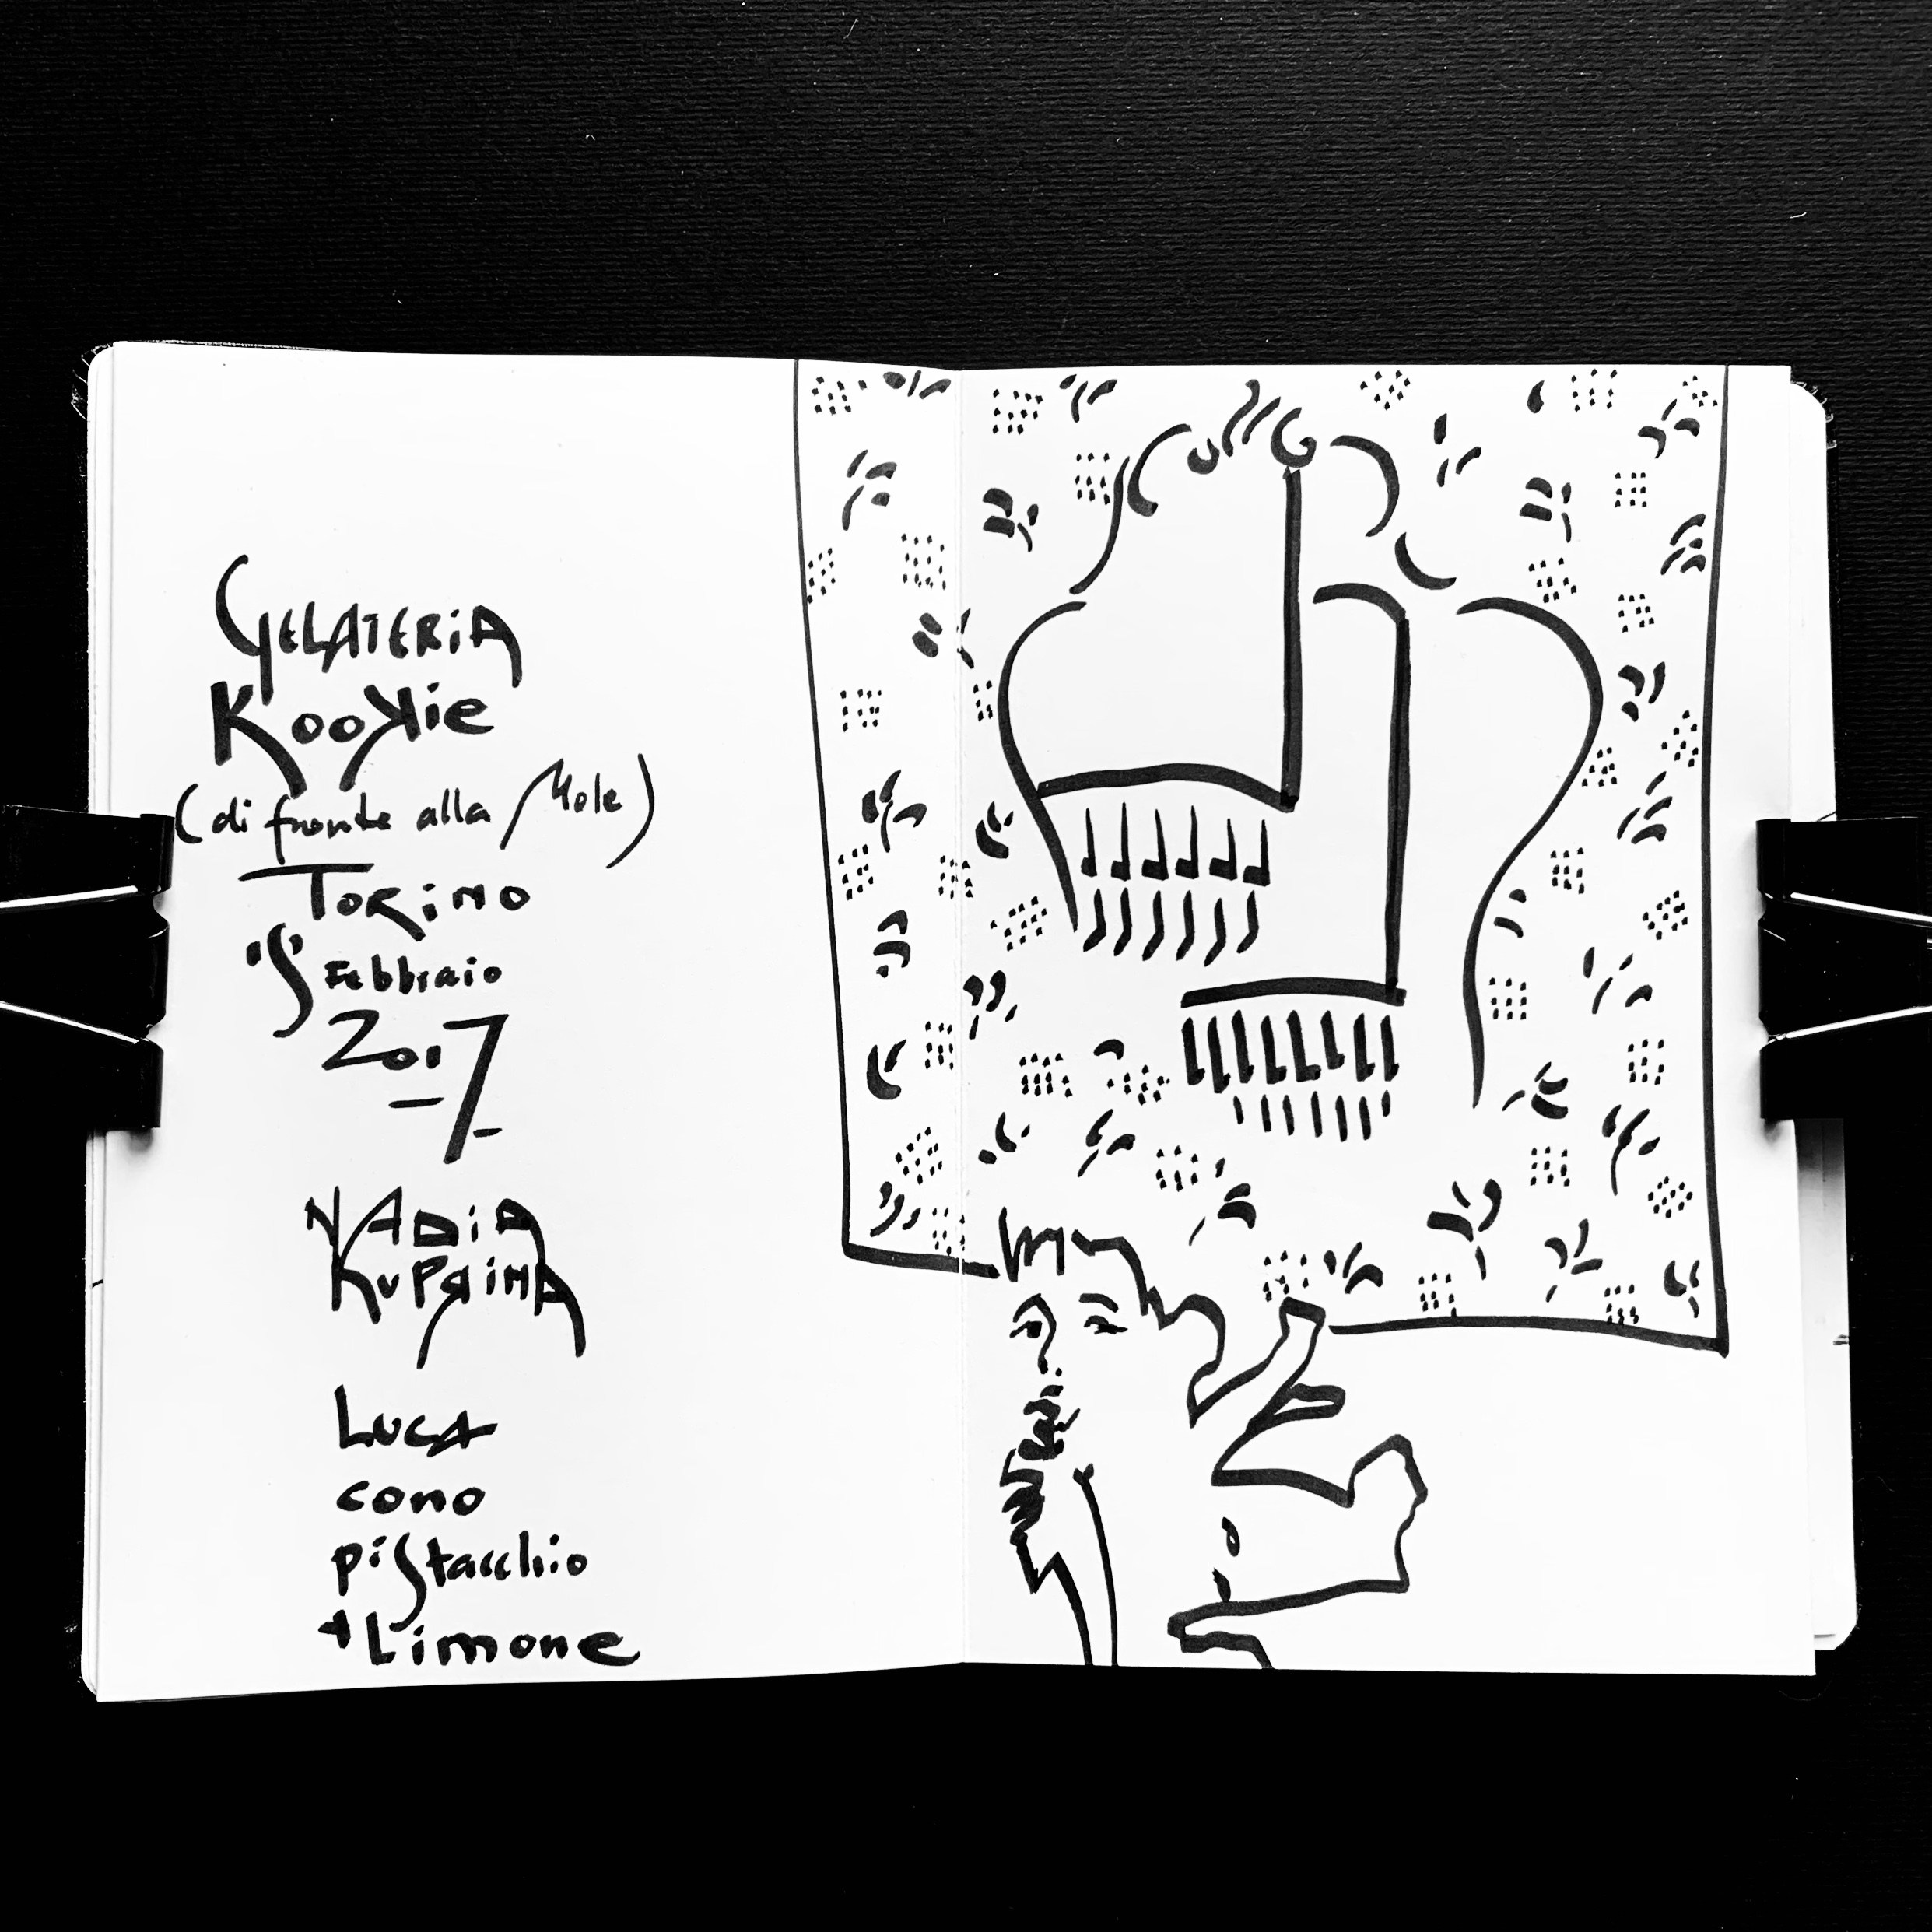 GELATERIA
Kookie
(di fronte alla Mole)
TORINO
Febbraio
2017
NADIA
KUPRINA
LUCA
cono
pistacchio
+ Limone